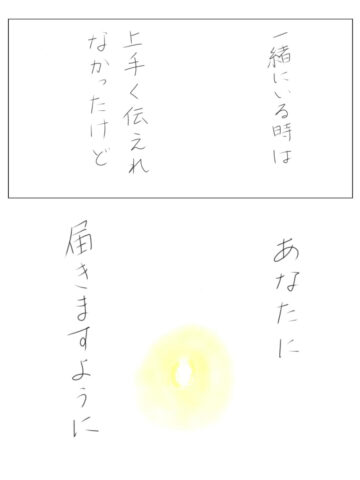 一緒にいる時は
上手く伝えれ
なかったけど
あなたに
届きますように